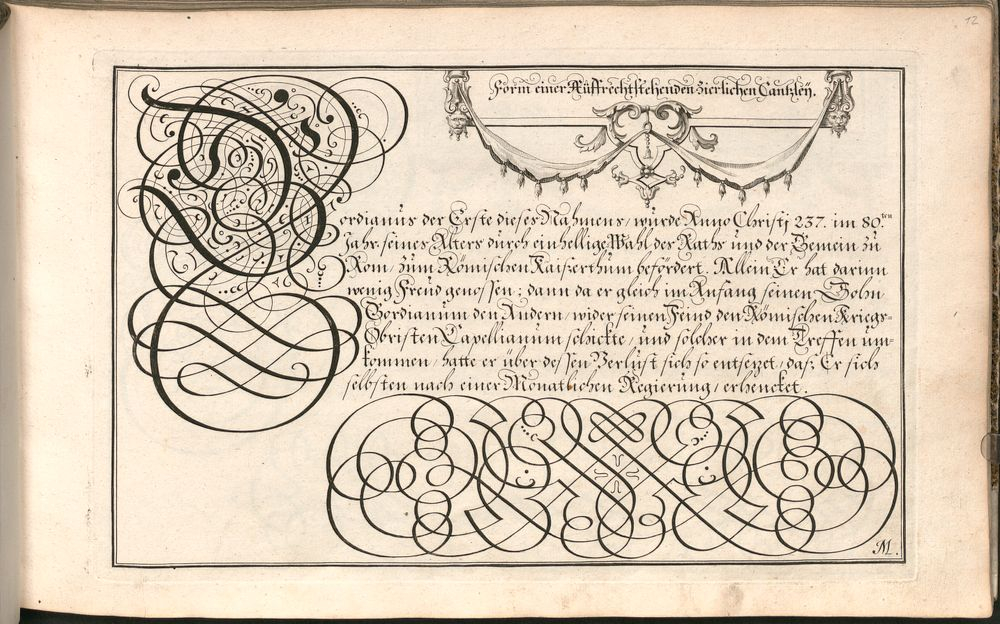 12
Form einer Auffrechtstehenden zierlichen Cantzleÿ.
Gordianus der Erste dieses Nahmens / wurde Anno Christj 237. im 80.ten
Jahr seines Alters durch einhellige Wahl des Raths und der Gemein zu
Rom / zum Römischen Kaiserthum befördert. Allein Er hat darinn
wenig Freud genossen: dann da er gleich im Anfang seinen Sohn
Gordianum den Andern / wider seinen Feind den Römischen Kriegs-
Obristen Capellianum schickte / und solcher in dem Treffen um-
kommen / hatte er über dessen Verlust sich so entsetzet / das Er sich
selbsten nach einer Monatlichen Regierung / erhencket.
M.